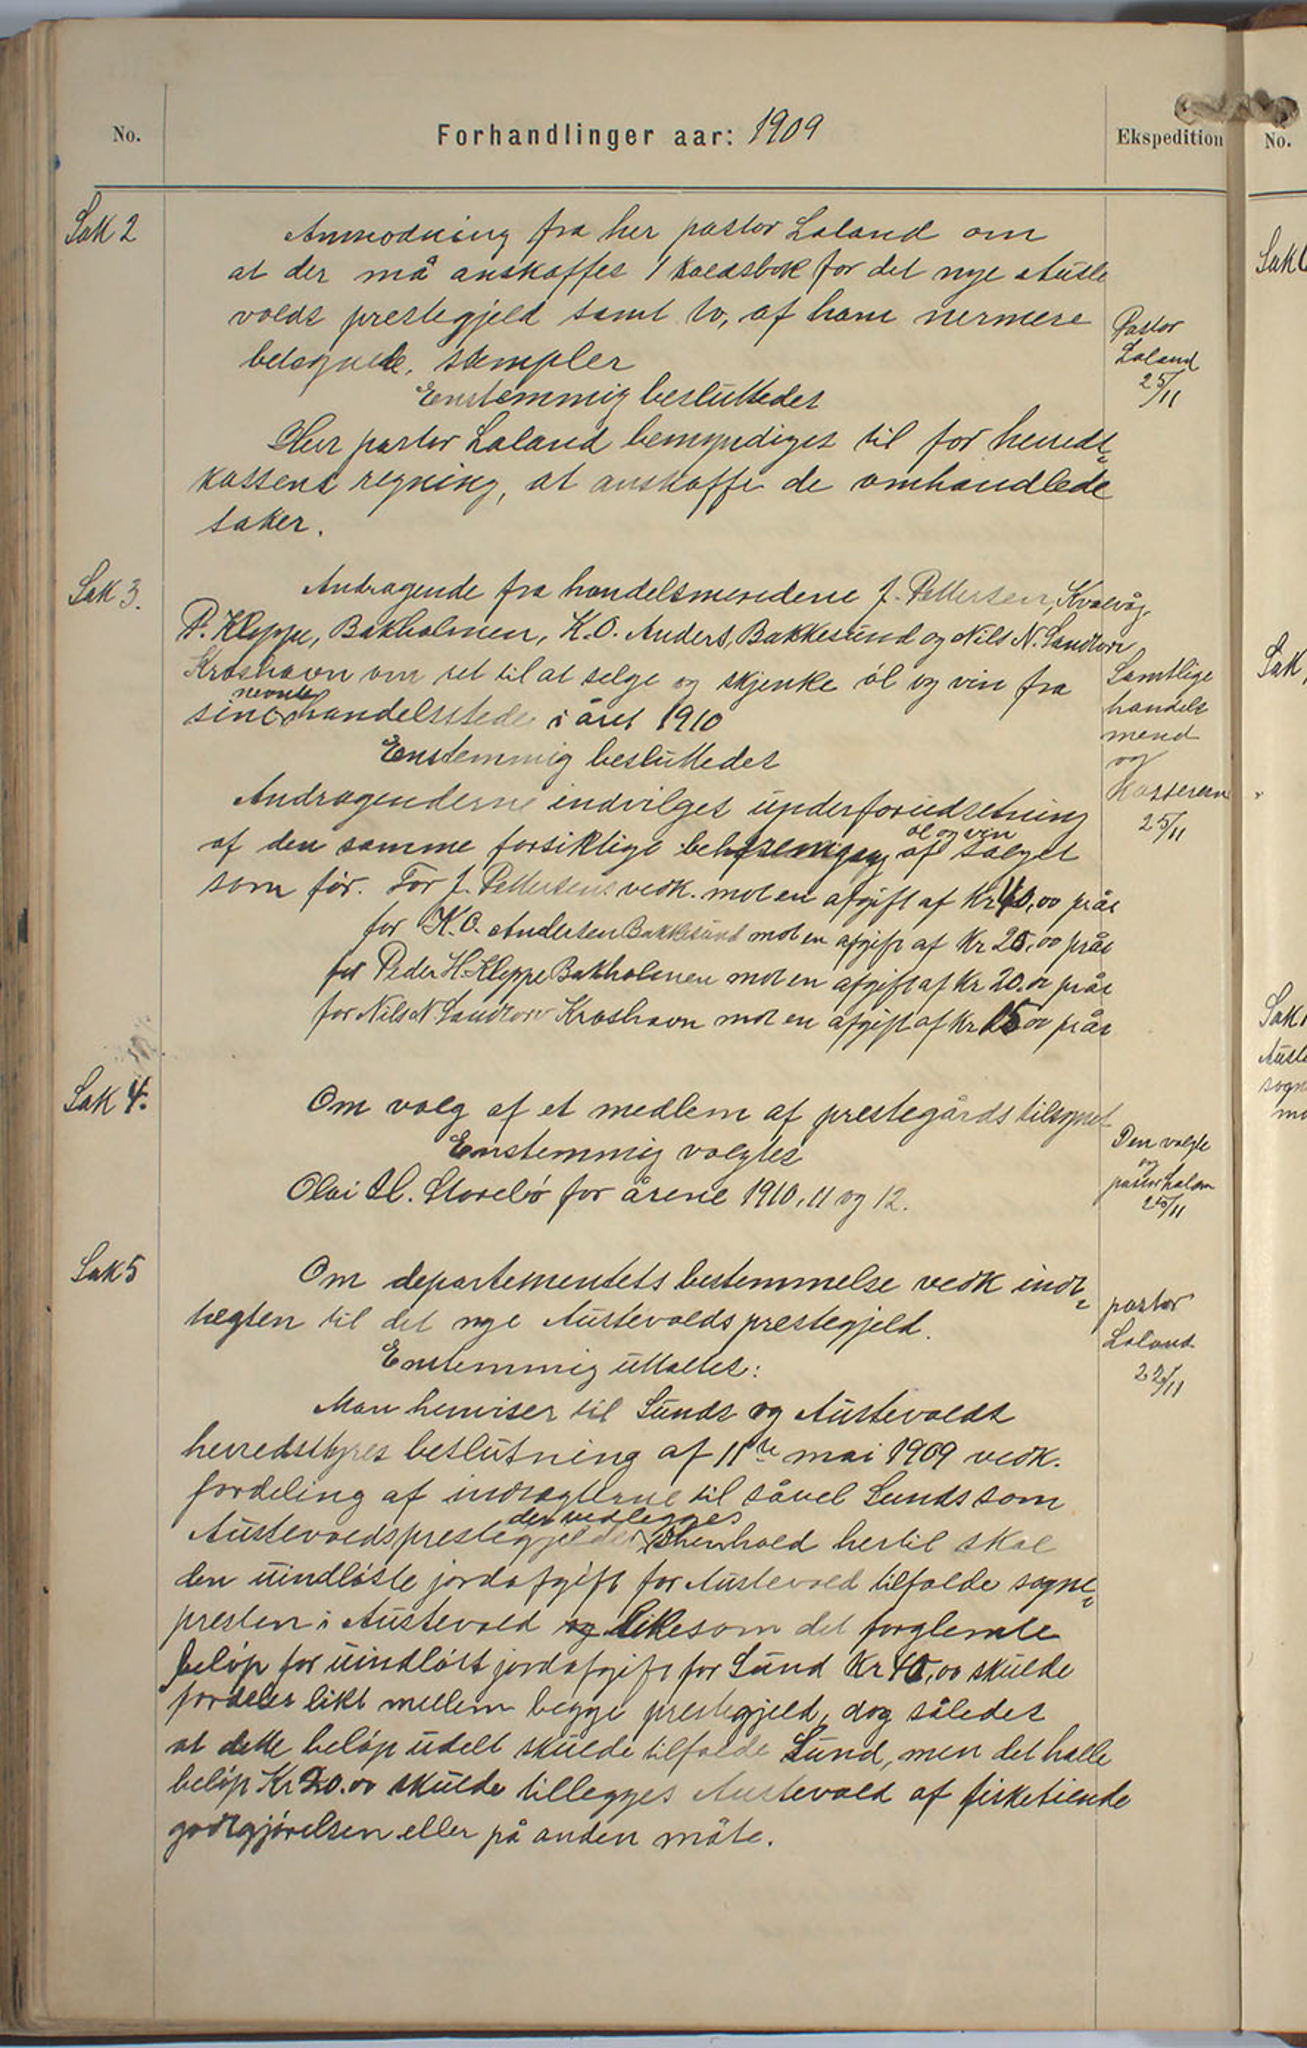 No.
Forhandlinger aar: 1909
Ekspedition
No.
Sak 2
Anmodning fra her pastor Laland om
at der må anskaffes 1 kaldsbok for det nye Auste
volds prestegjeld samt to, af ham nermere
betegnede, stempler
Enstemmig besluttedes
Herr pastor Laland bemyndiges til for herreds=
kassens regning, at anskaffe de omhandlede
saker.
Pastor
Laland
25/11
Sak 3.
Andragende fra handelsmendene J. Pettersen, Kvalvåg,
P. Kleppe, Bakholmen, K.O. Anders, Bakkesund og Nils N. Landtorv
Kroshavn om ret til at selge og skjenke øl og vin fra
nevnte
sine handelsstede i året 1910
Enstemmig besluttedes
Andragenderne indvilges under forudsetning
øl og vin
af den samme forsiktige af salget
som før. For J. Pettersens vedk. mot en afgift af Kr 40,00 pr år
for K.O. Andersen Bakkesund mot en afgift af Kr 25,00 pr år
for Peder H. Kleppe Bakholmen mot en afgift af Kr 20.00 pr år
for Nils N. Landtorv Kroshavn mot en afgift af Kr 15 00 pr år
Samtlige
handels
mend
og
kasseren
25/11
Sak 4.
Om valg af et medlem af prestegårdstilsynet
Enstemmig valgtes
Olai H. Storebø for årene 1910, 11 og 12.
Den valgte
og
pastor Lalan
25/11
Sak 5
Om departementets bestemmelse vedk indt=
tegten til det nye Austevolds prestegjeld.
Enstemmig uttaltes:
Man henviser til Sunds og Austevolds
herredstyres beslutning af 11te mai 1909 vedk.
fordeling af indtegterne til såvel Sunds som
der vedlegges
Austevolds prestegjelder I henhold hertil skal
den uindløste jordafgift for Austevold tilfalde sogne=
presten i Austevold og likesom det forglemte
beløp for uindløst jordafgift for Sund Kr 40,00 skulde
fordeles likt mellem begge prestegjeld, dog således
at dette beløp udelt skulde tilfalde Sund, men det halle
beløp Kr 20.00 skulde tillegges Austevold af fisketiende
godtgjørelsen eller på anden måte.
pastor
Laland
22/11
Sak
Sak
Sak
Auste
sogn